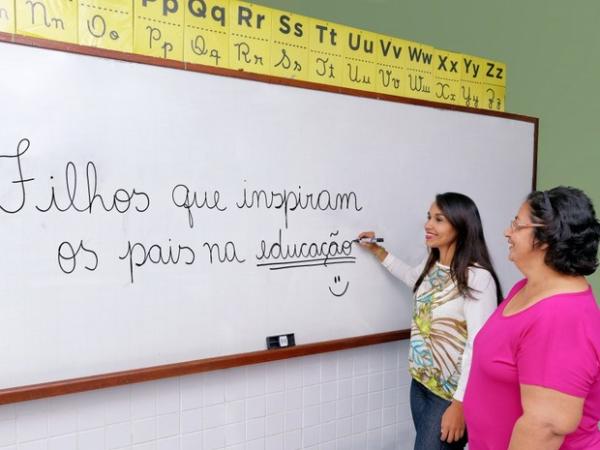 Nn Oo Pp Qq Rr Ss Tt Uu Vv Ww Xx Yy Zz
Nn Oo Pp Qq Rr Ss Tt Uu Vv Ww Xx Yy Zz
Filhos que inspiram
os pais na educação